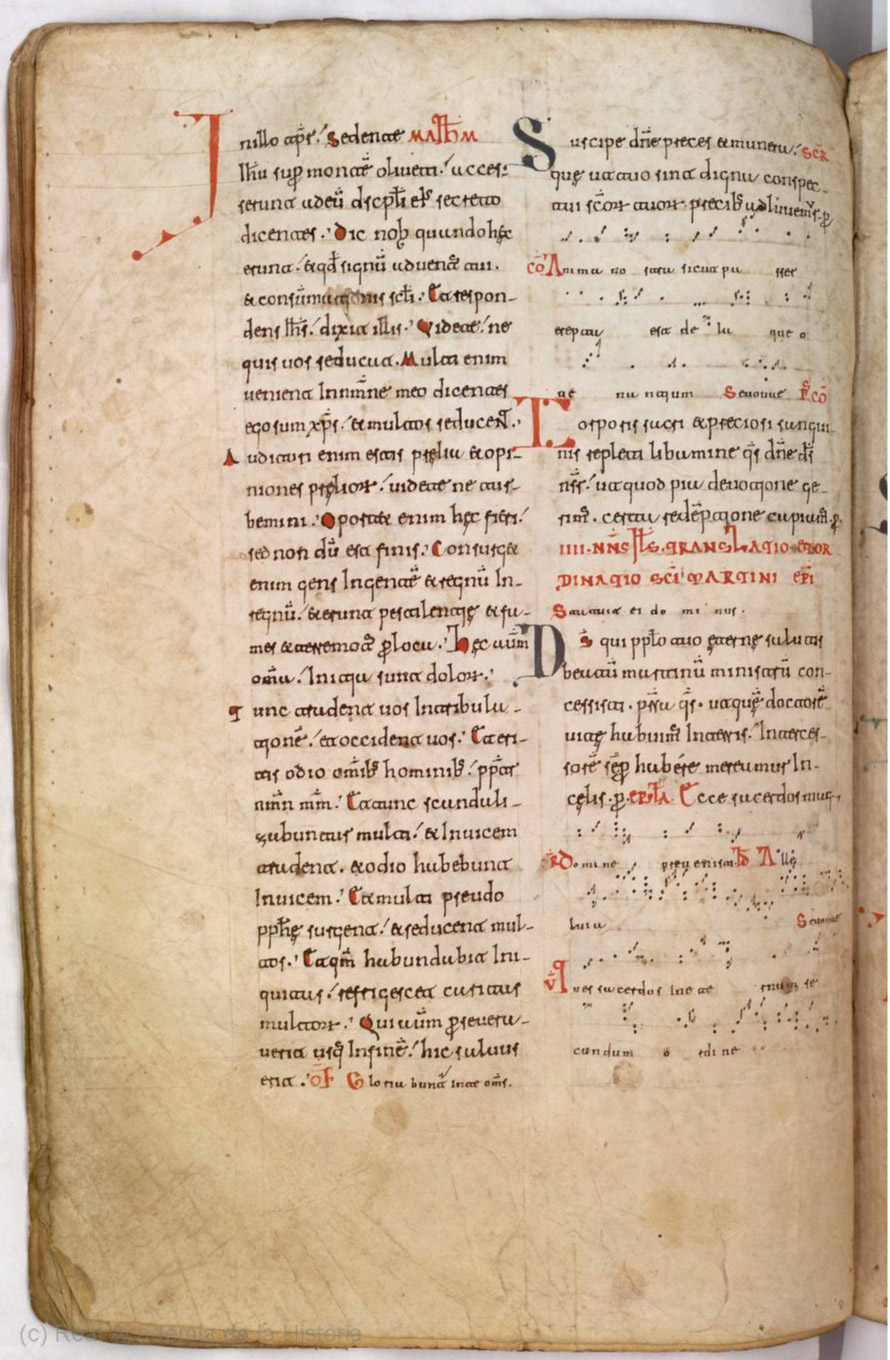 In illo tp̄r. Sedente MATHM
Ihū sup̄ montē oliveti. acces-
serunt ad eū discipl̄i ei' secreto
dicentes. Dic nob quando hęc
erunt. & qd̄ signū adventꝰ tui.
& consūmationis scl̄i. Et respon-
dens Ihs̄. dixit illis. Videte ne
quis vos seducat. Multi enim
venient In nom̄ne meo dicentes
ego sum xp̄s. & multos seducent.
Audituri enim estis pręlia & opi-
niones pręliorꝝ. videte ne tur-
bemini. Oportet enim hęc fieri.
sed non dū est finis. Consurget
enim gens In gentē & regnū In
regnū. & erunt pestilentię & fa-
mes & terremotꝰ p̄ loca. Hęc autm̄
om̄a. Initia sunt dolorꝝ.
Tunc tradent vos In tribula-
tionē. et occident vos. Et eri-
tis odio om̄ibꝰ hominibꝰ. pp̄t
nom̄n m̄m. Et tunc scandali-
zabuntur multi. & Invicem
tradent. & odio habebunt
Invicem. Et multi pseudo
pph̄ę surgent. & seducent mul-
tos. Et qm̄ habundabit Ini-
quitas. refrigescet caritas
multorꝝ. Qui autm̄ p̄severa-
verit usq; In finē. hic salvus
erit. OF Gloriabunt In te oms̄.
Suscipe dn̄e preces & munera. SCR
quę ut tuo sint dignа conspec-
tui scōrꝝ tuorꝝ precibꝰ adiuvemr̄. p̄
CŌ Anima nostra sicut passer
erepta est de laqueo
venantium Seuouae PꝰCŌ
Corporis sacri & preciosi sangui-
nis repleti libamine qs̄ dn̄e ds̄
nr̄. ut quod pia devotione ge-
rimꝰ. certa redēptione capiamꝰ. p̄
IIII. NNS IƚS. TRANSLATIO ET OR
DINATIO SC̄I MARTINI EPI
Statuit ei dominus.
Ds̄ qui pp̄lo tuo ęternę salutis
beatū martinū ministrū con-
cessisti. presta qs̄. ut quę doctorē
vitę habuimꝰ In terris. Intercess-
sorē sēp̄ habere mereamur In
cęlis. p̄. EPLA. Ecce sacerdos mag
R̄ Domine prevenisti TB Allę
luia Seuouae
V̄ Tu es sacerdos In ęternum se
cundum ordine